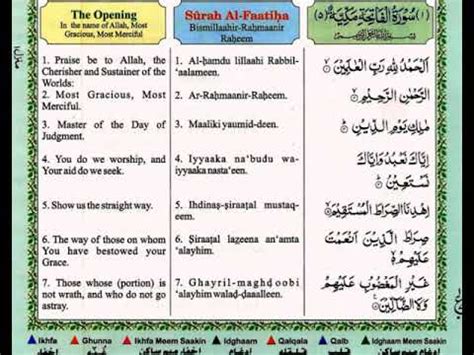 The Opening
In the name of Allah, Most
Gracious, Most Merciful
1. Praise be to Allah, the
Cherisher and Sustainer of the
Worlds:
2. Most Gracious, Most
Merciful.
3. Master of the Day of
Judgment.
4. You do we worship, and Your
Aid do we seek.
5. Show us the straight way.
6. The way of those on whom
You have bestowed your
Grace.
7. Those whose (portion) is
not wrath, and who do not go
astray.
Sûrah Al-Faatiḥa
Bismillaahir-Raḥmaanir
Raḥeem
1. Al-ḥamdu lillaahi Rabbil-
‘aalameen.
2. Ar-Raḥmaanir-Raḥeem.
3. Maaliki yaumid-deen.
4. Iyyaaka na‘budu wa-
iyyaaka nasta‘een.
5. Ihdinaṣ-ṣiraaṭal mustaq-
eem.
6. Ṣiraaṭal lazeena an‘amta
‘alayhim.
7. Ghayril-maghḍoobi
‘alayhim walaḍ-ḍaalleen.
(١) سُوْرَةُ الْفَاتِحَةِ مَكِّيَّةٌ (٥)
اَلْحَمْدُ لِلّٰهِ رَبِّ الْعٰلَمِيْنَ ۝
الرَّحْمٰنِ الرَّحِيْمِ ۝
مٰلِكِ يَوْمِ الدِّيْنِ ۝
اِيَّاكَ نَعْبُدُ وَاِيَّاكَ
نَسْتَعِيْنُ ۝
اِهْدِنَا الصِّرَاطَ الْمُسْتَقِيْمَ ۝
صِرَاطَ الَّذِيْنَ اَنْعَمْتَ
عَلَيْهِمْ ۝
غَيْرِ الْمَغْضُوْبِ عَلَيْهِمْ
وَلَا الضَّآلِّيْنَ ۝
Ikhfa
Ghunna
Ikhfa Meem Saakin
Idghaam
Qalqala
Qalb
Idghaam Meem Saakin